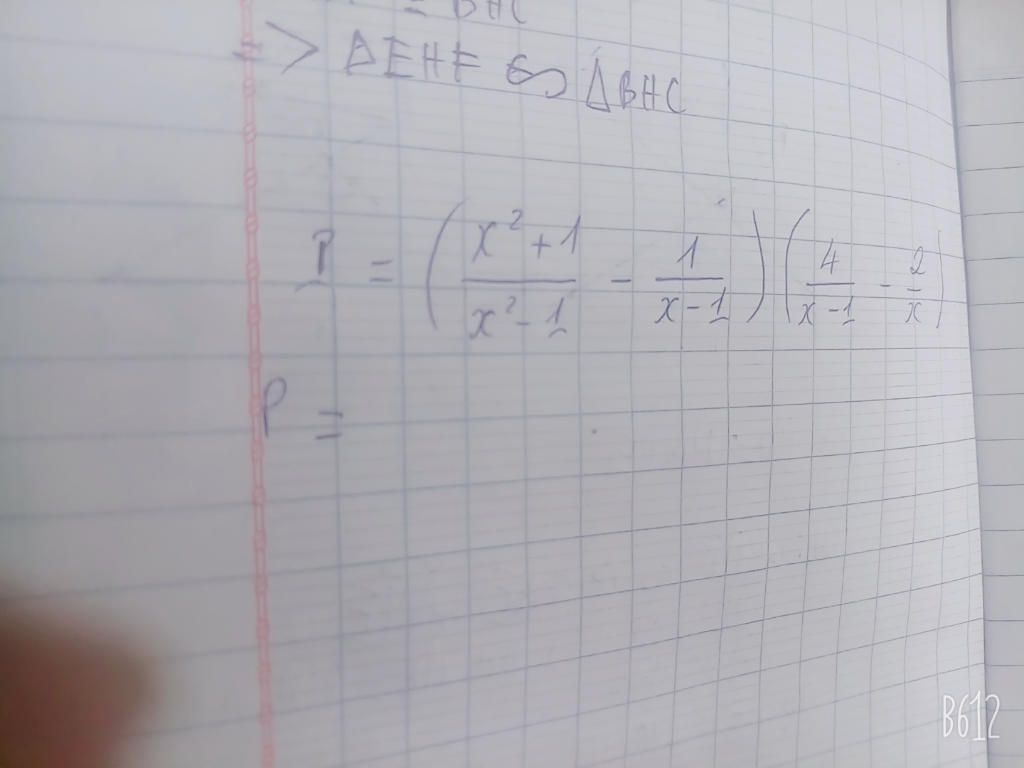 = BHC
=> ΔEHF ∽ ΔBHC
P = (x²+1/x²-1 - 1/x-1)(4/x-1 - 2/x)
P =
B612